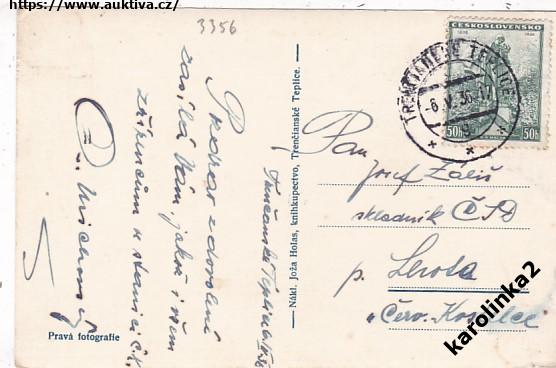 https://www.auktiva.cz/
3356
ČESKOSLOVENSKO
50h 50h
TRENČIANSKE TEPLICE
-6.V.36.-17
Pozdrav z dovolené
zasílá Vám, jakož i všem
zřízencům u stanici
Trenčanské Teplice
— Nákl. Joža Holas, knihkupectvo, Trenčianské Teplice. —
Pan
Josef Záliš
skladník ČSD
p. Lhota
Červ. Kostelec
Pravá fotografie
karolinka2